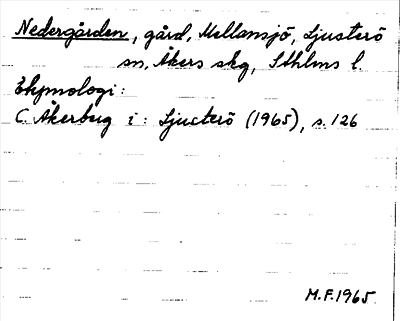 Nedergården, gård, Mellansjö, Ljusterö
sn, Åkers skg, Sthlms l.
Etymologi:
C. Åkerberg i: Ljusterö (1965), s. 126
M.F. 1965